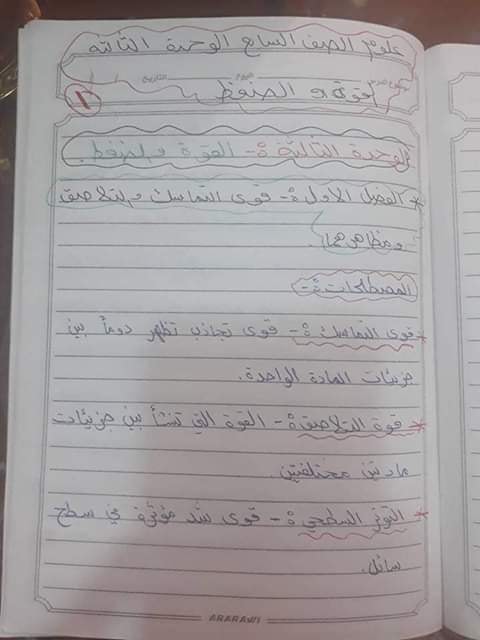 علوم الصف السابع الوحدة الثالثة
قوة و الضغط
١
الوحدة الثالثة :- القوة والضغط.
* الفصل الاول :- قوى التماسك والتلاصق
ومظاهرهما.
المصطلحات :-
* قوى التماسك :- قوى تجاذب تظهر دوماً بين
جزيئات المادة الواحدة.
* قوة التلاصق :- القوة التي تنشأ بين جزيئات
مادتين مختلفتين.
* التوتر السطحي :- قوى شد مؤثرة في سطح
سائل.
ARARAWI